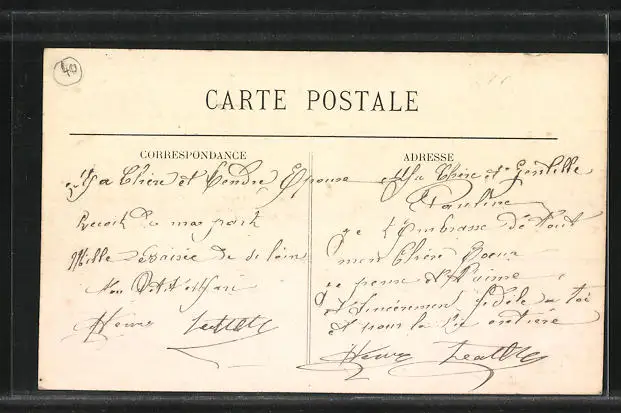 40
CARTE POSTALE
CORRESPONDANCE
Ma Chère et Tendre Epouse
Recoit de ma part
Mille de si loin
Mon Mari
Henri
ADRESSE
Ma Chère et Gentille
Pauline
je t'Embrasse de tout
mon Chère Coeur
je pense et t'aime
Sincèrement fidèle a toi
et pour la vie entière
Henri